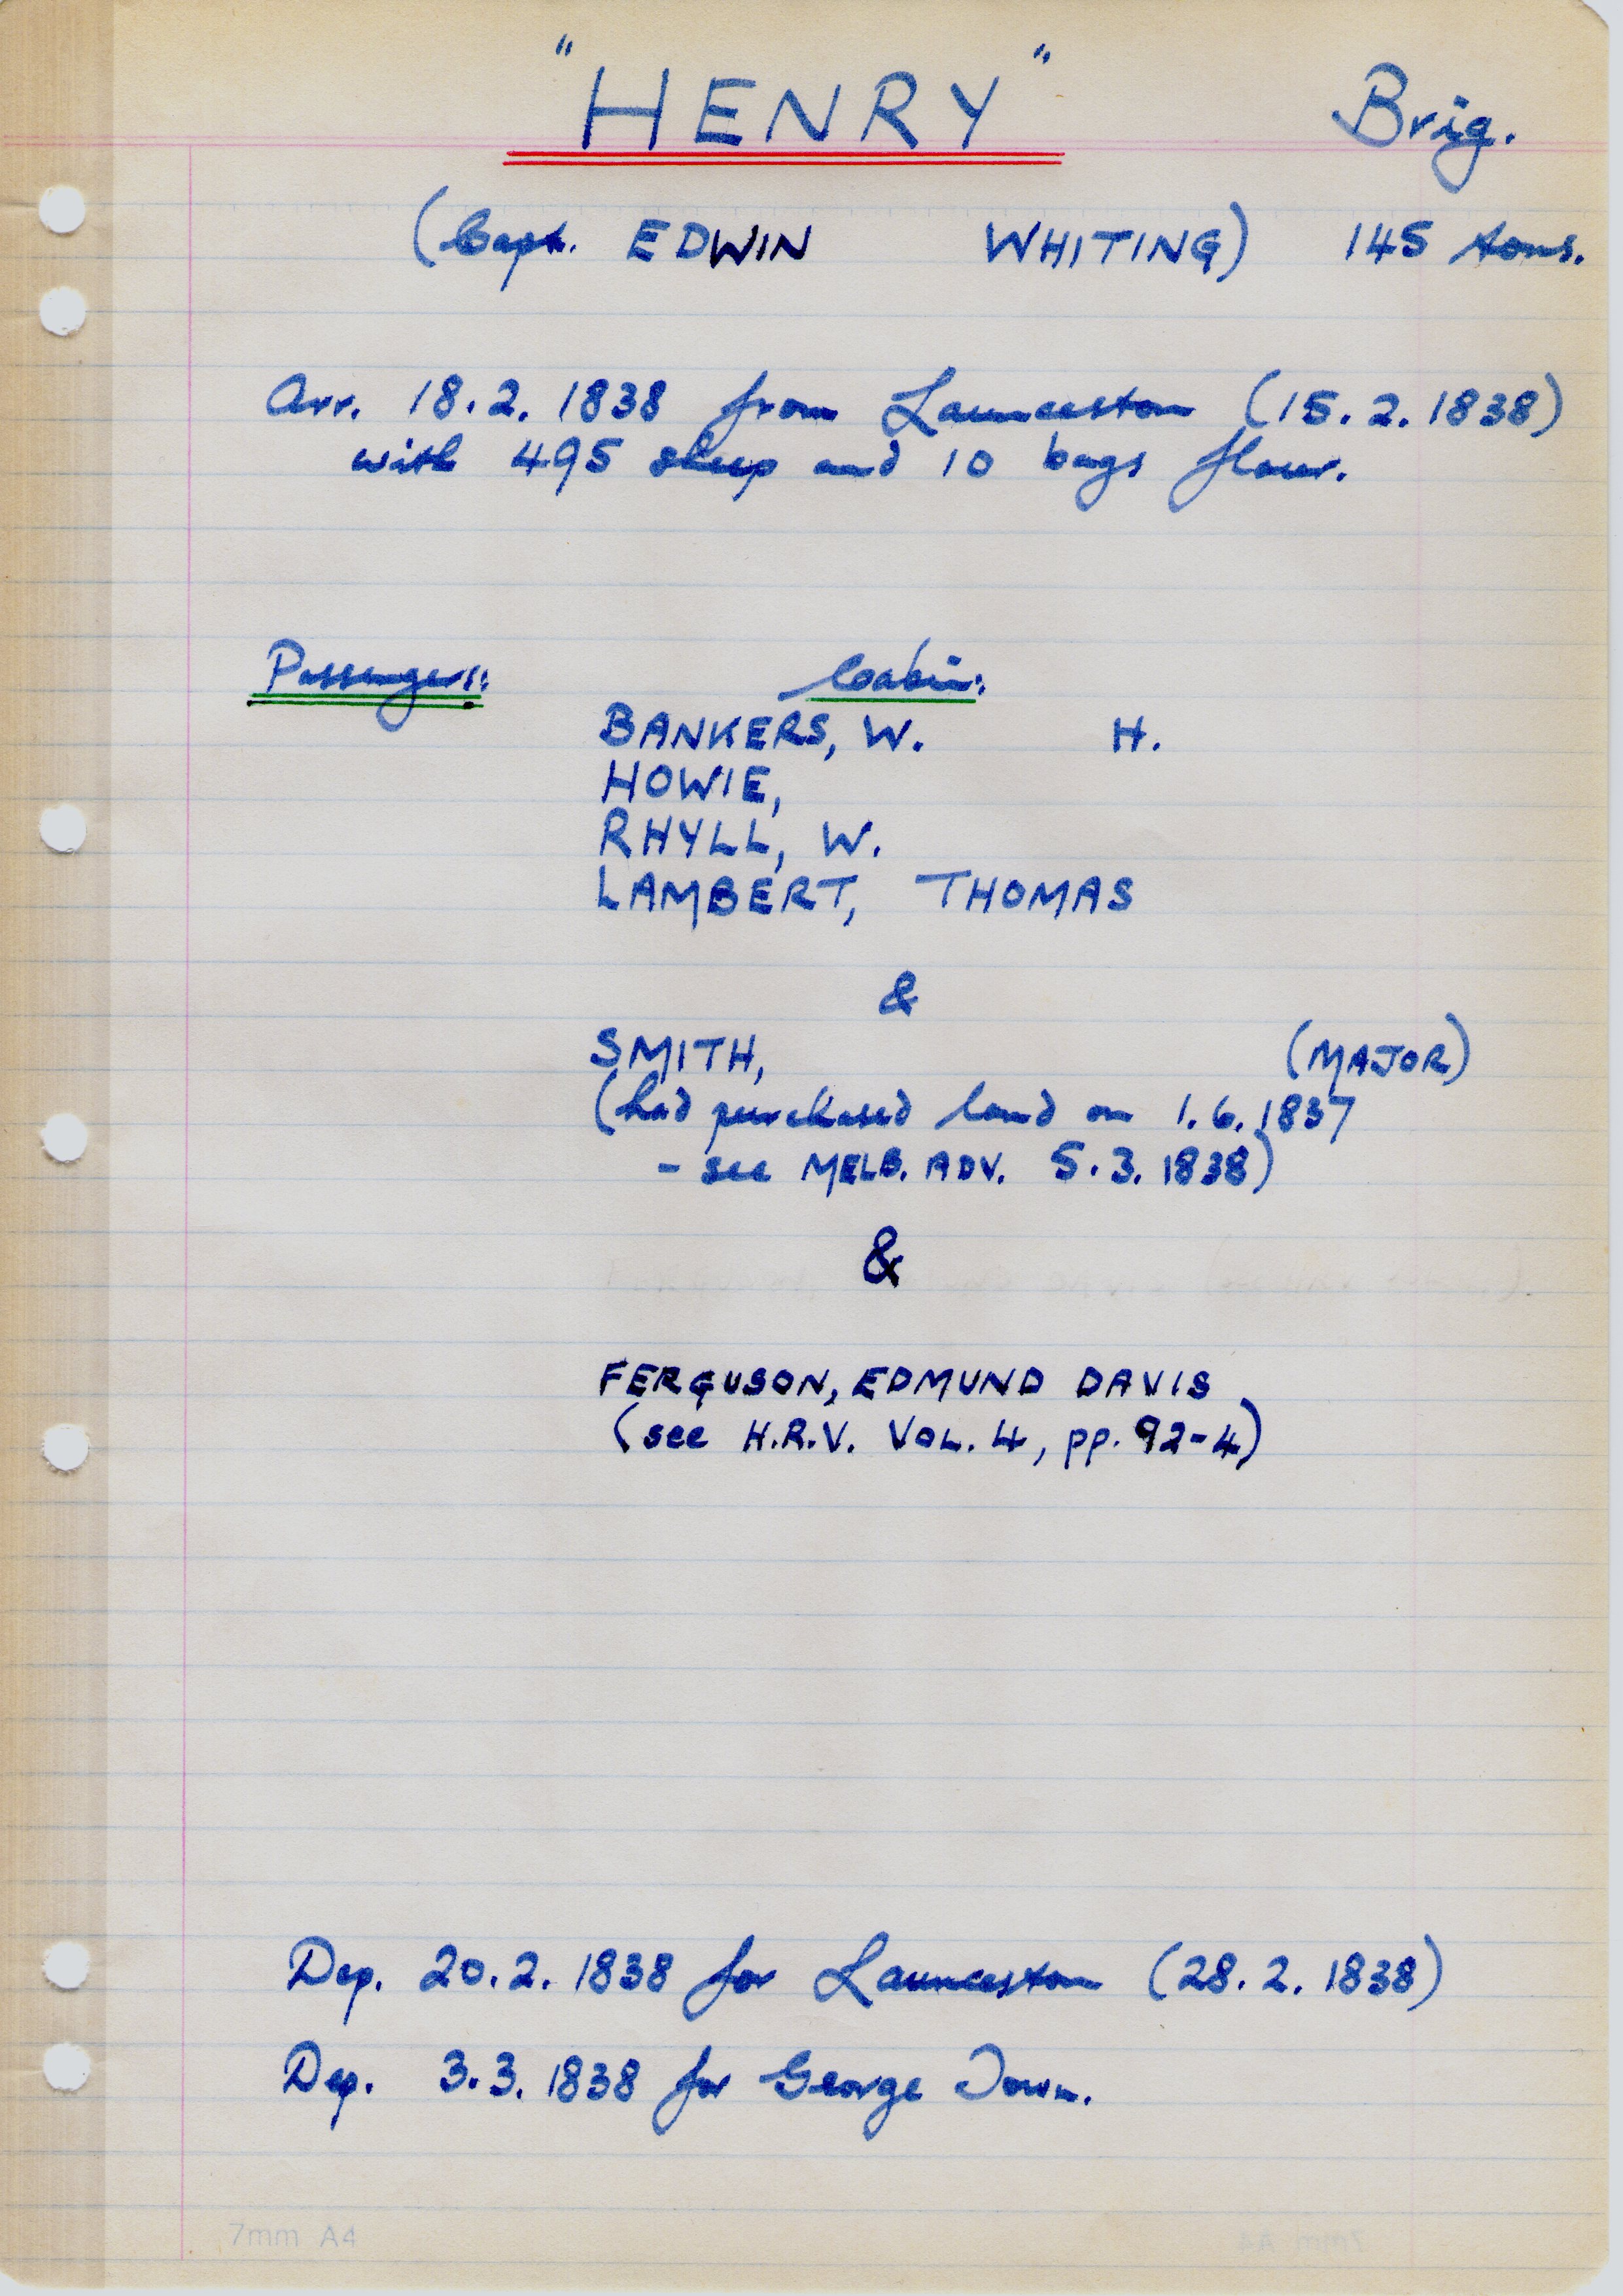 "HENRY" Brig.
(Capt. EDWIN WHITING) 145 tons.
Arr. 18.2.1838 from Launceston (15.2.1838)
with 495 sheep and 10 bags flour.
Passengers: Cabin:
BANKERS, W. H.
HOWIE,
RHYLL, W.
LAMBERT, THOMAS
&
SMITH, (MAJOR)
(had purchased land on 1.6.1837
- see MELB. ADV. 5.3.1838)
&
FERGUSON, EDMUND DAVIS
(see H.R.V. VOL. 4, pp. 92-4)
Dep. 20.2.1838 for Launceston (28.2.1838)
Dep. 3.3.1838 for George Town.
7mm A4